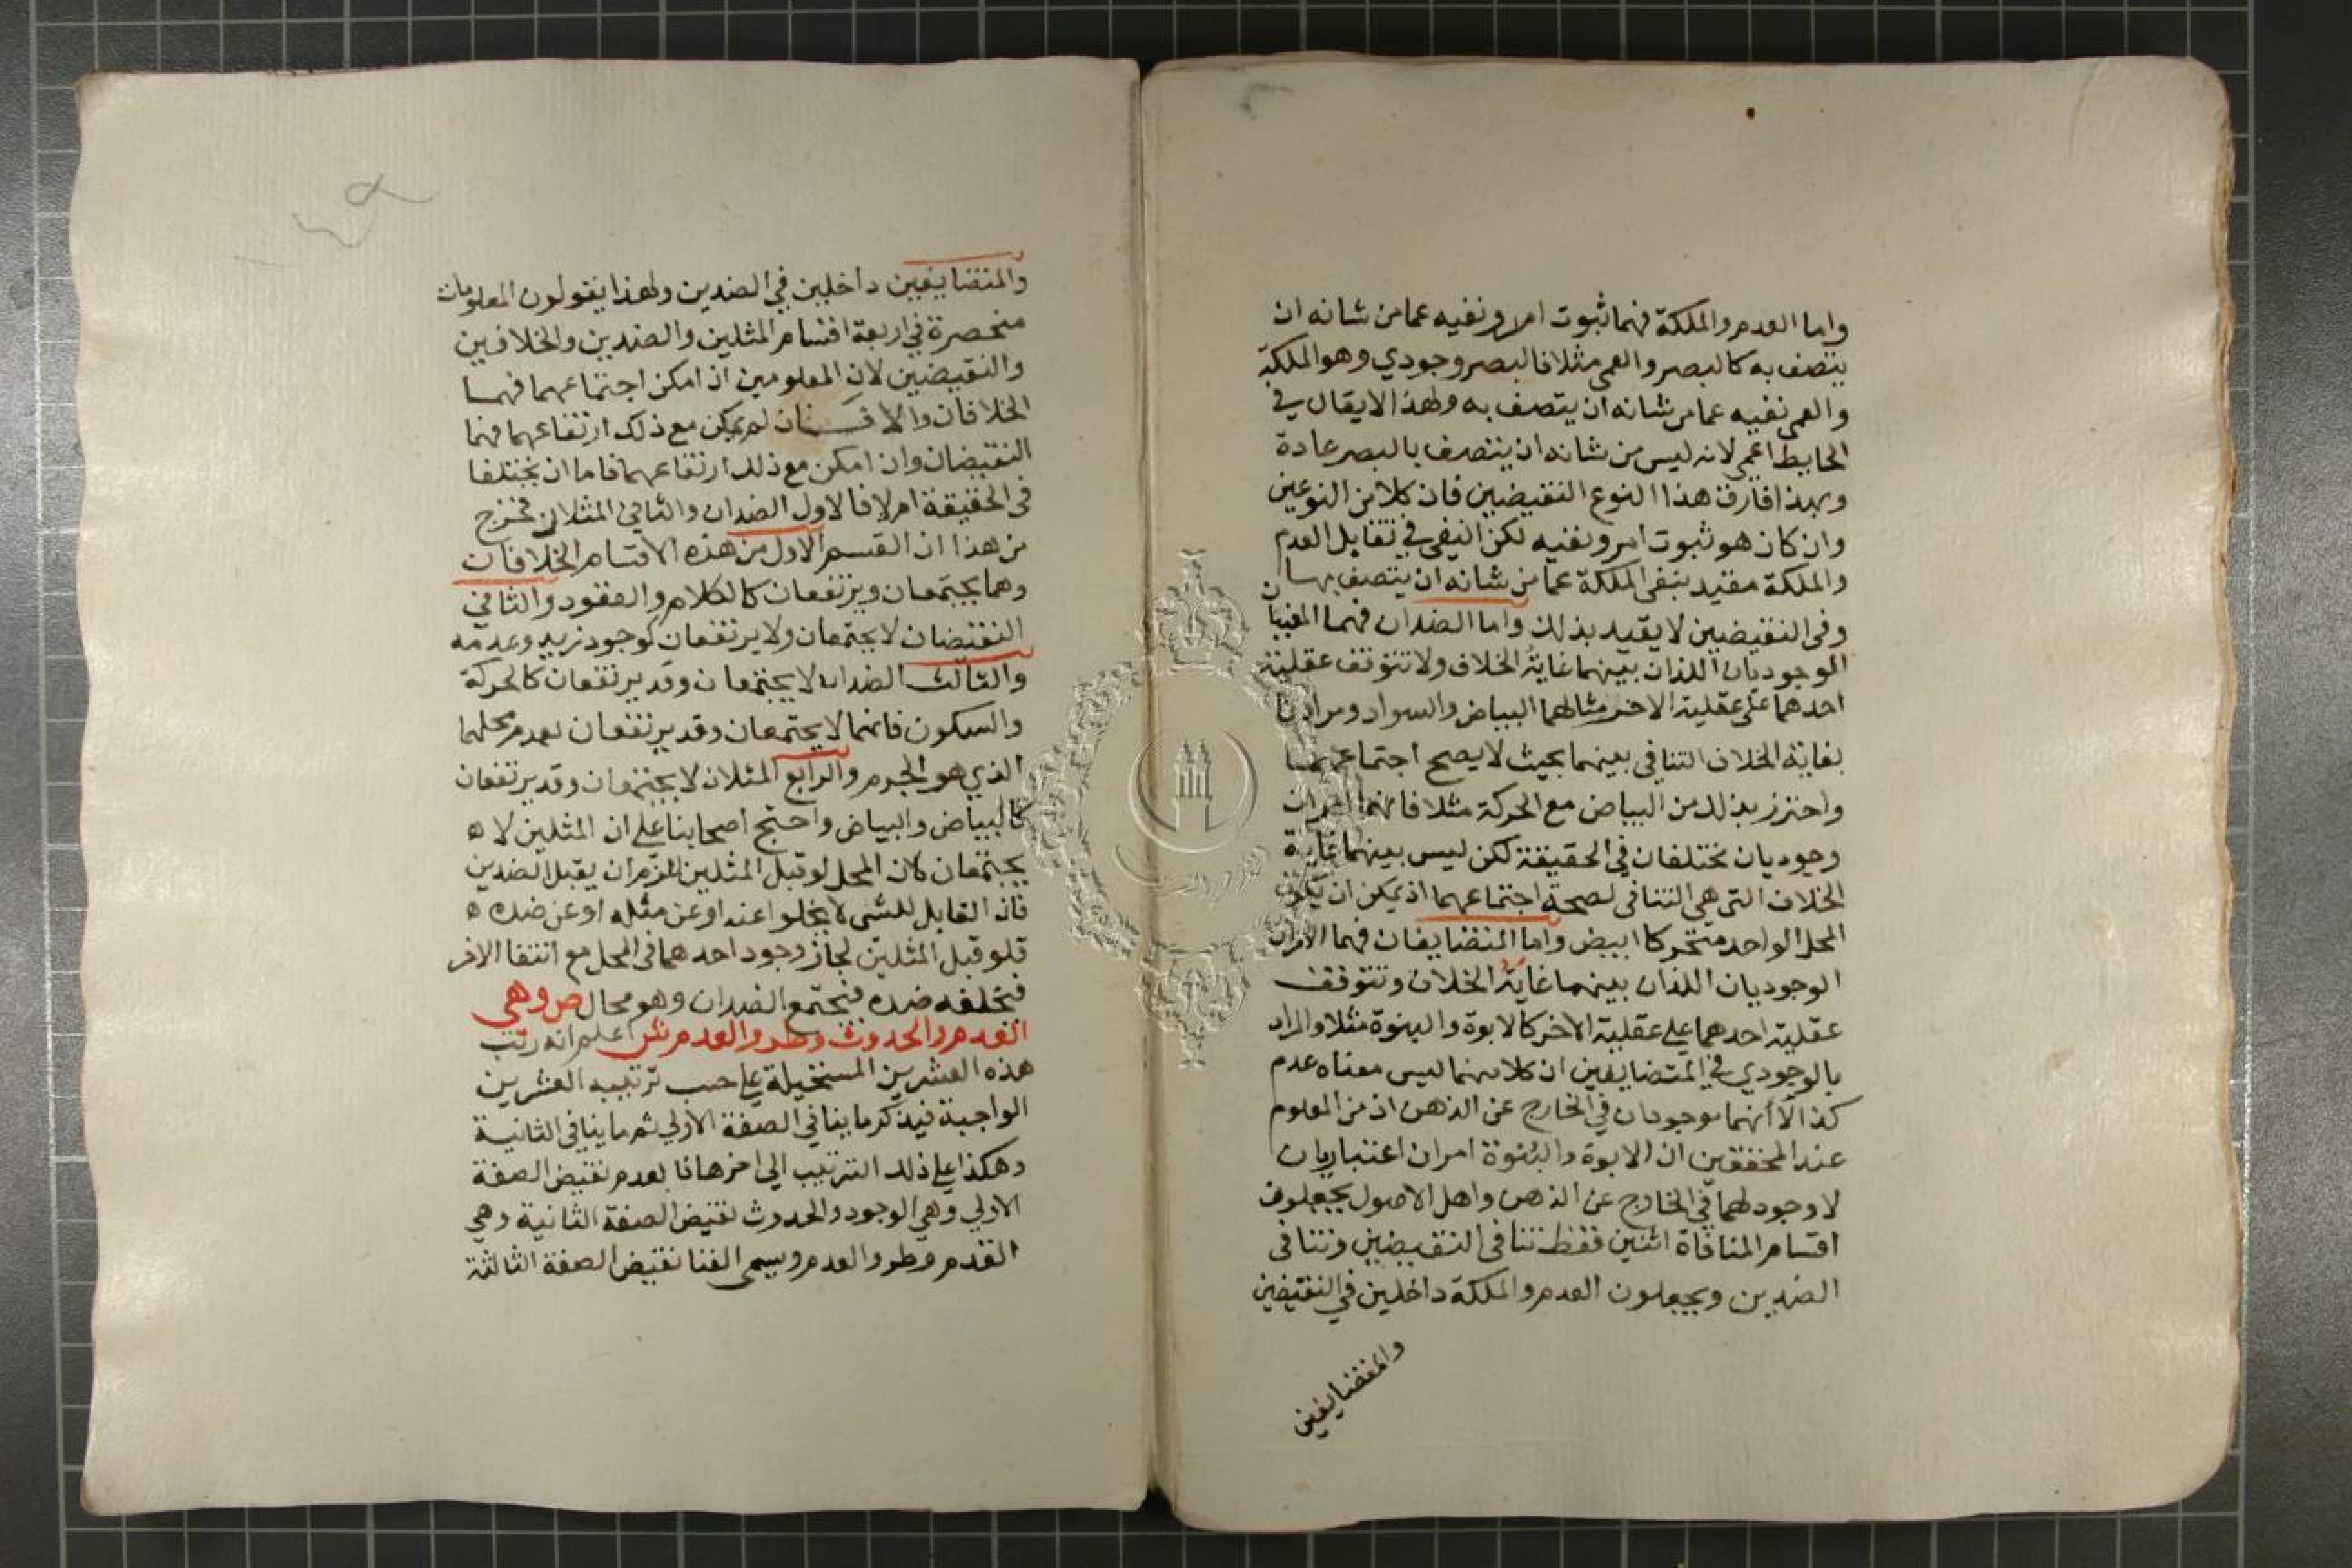 واما العدم والملكة فهما ثبوت امر ونفيه عما من شانه ان
يتصف به كالبصر والعمى مثلا فالبصر وجودي وهو الملكة
والعمى نفيه عما من شانه ان يتصف به ولهذا لا يقال في
الحايط اعمى لانه ليس من شانه ان يتصف بالبصر عادة
وبهذا فارق هذا النوع النقيضين فان كلا من النوعين
وان كان هو ثبوت امر ونفيه لكن النفي في تقابل العدم
والملكة مقيد بنفى الملكة عما من شانه ان يتصف بها
وفى النقيضين لا يقيد بذلك واما الضدان فهما المعنيان
الوجوديان اللذان بينهما غاية الخلاف ولا تتوقف عقلية
احدهما على عقلية الاخر مثالهما البياض والسواد ومرادنا
بغاية الخلاف التنافى بينهما بحيث لا يصح اجتماعهما
واحترز بذلك من البياض مع الحركة مثلا فانهما امران
وجوديان مختلفان في الحقيقة لكن ليس بينهما غاية
الخلاف التى هي التنافى لصحة اجتماعهما اذ يمكن ان يكون
المحل الواحد متحركا ابيض واما المتضايفان فهما الامران
الوجوديان اللذان بينهما غاية الخلاف وتتوقف
عقلية احدهما على عقلية الاخر كالابوة والبنوة مثلا والمراد
بالوجودي في المتضايفين ان كلا منهما ليس معناه عدم
كذا لا أنهما موجودان في الخارج عن الذهن اذ من المعلوم
عند المحققين ان الابوة والبنوة امران اعتباريان
لا وجود لهما في الخارج عن الذهن واهل الاصول يجعلون
اقسام المنافاة اثنين فقط تنافى النقيضين وتنافى
الضدين ويجعلون العدم والملكة داخلين في النقيضين
والمتضايفين
والمتضايفين داخلين في الضدين ولهذا يقولون المعلومات
منحصرة في اربعة اقسام المثلين والضدين والخلافين
والنقيضين لان المعلومين ان امكن اجتماعهما فهما
الخلافان والا فان لم يمكن مع ذلك ارتفاعهما فهما
النقيضان وان امكن مع ذلك ارتفاعهما فاما ان يختلفا
فى الحقيقة ام لا فالاول الضدان والثاني المثلان فخرج
من هذا ان القسم الاول من هذه الاقسام الخلافان
وهما يجتمعان ويرتفعان كالكلام والقعود والثاني
النقيضان لا يجتمعان ولا يرتفعان كوجود زيد وعدمه
والثالث الضدان لا يجتمعان وقد يرتفعان كالحركة
والسكون فانهما لا يجتمعان وقد يرتفعان بعدم محلهما
الذي هو الجرم والرابع المثلان لا يجتمعان وقد يرتفعان
كالبياض والبياض واحتج اصحابنا على ان المثلين لا ه
يجتمعان كان المحل لو قبل المثلين للزم ان يقبل الضدين
فان القابل للشى لا يخلوا عنه او عن مثله او عن ضده ه
فلو قبل المثلين لجاز وجود احدهما فى المحل مع انتفا الاخر
فتخلفه ضده فيجتمع الضدان وهو محال ص وهي
العدم والحدوث وطرو العدم ش اعلم انه رتب
هذه العشرين المستحيلة على حسب ترتيبه العشرين
الواجبة فيذكر ما ينافي الصفة الاولي ثم ما ينافى الثانية
وهكذا على ذلك الترتيب الي اخرها فالعدم نقيض الصفة
الاولي وهي الوجود والحدوث نقيض الصفة الثانية وهي
القدم وطرو العدم ويسمى الفنا نقيض الصفة الثالثة